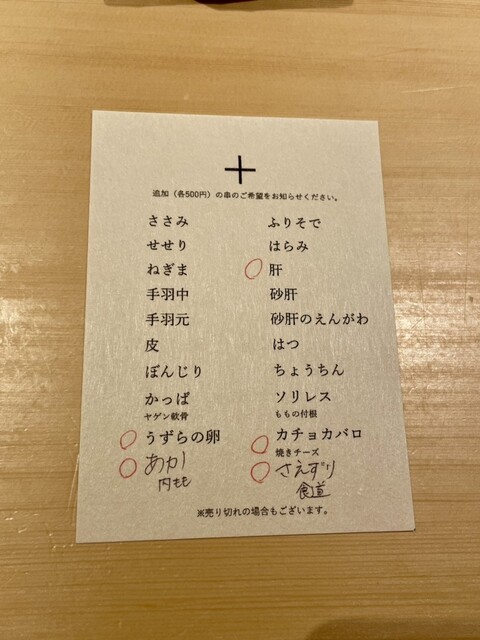 +
追加（各500円）の串のご希望をお知らせください。
ささみ
せせり
ねぎま
手羽中
手羽元
皮
ぼんじり
かっぱ
ヤゲン軟骨
うずらの卵
あか
内もも
ふりそで
はらみ
肝
砂肝
砂肝のえんがわ
はつ
ちょうちん
ソリレス
ももの付根
カチョカバロ
焼きチーズ
さえずり
食道
※売り切れの場合もございます。